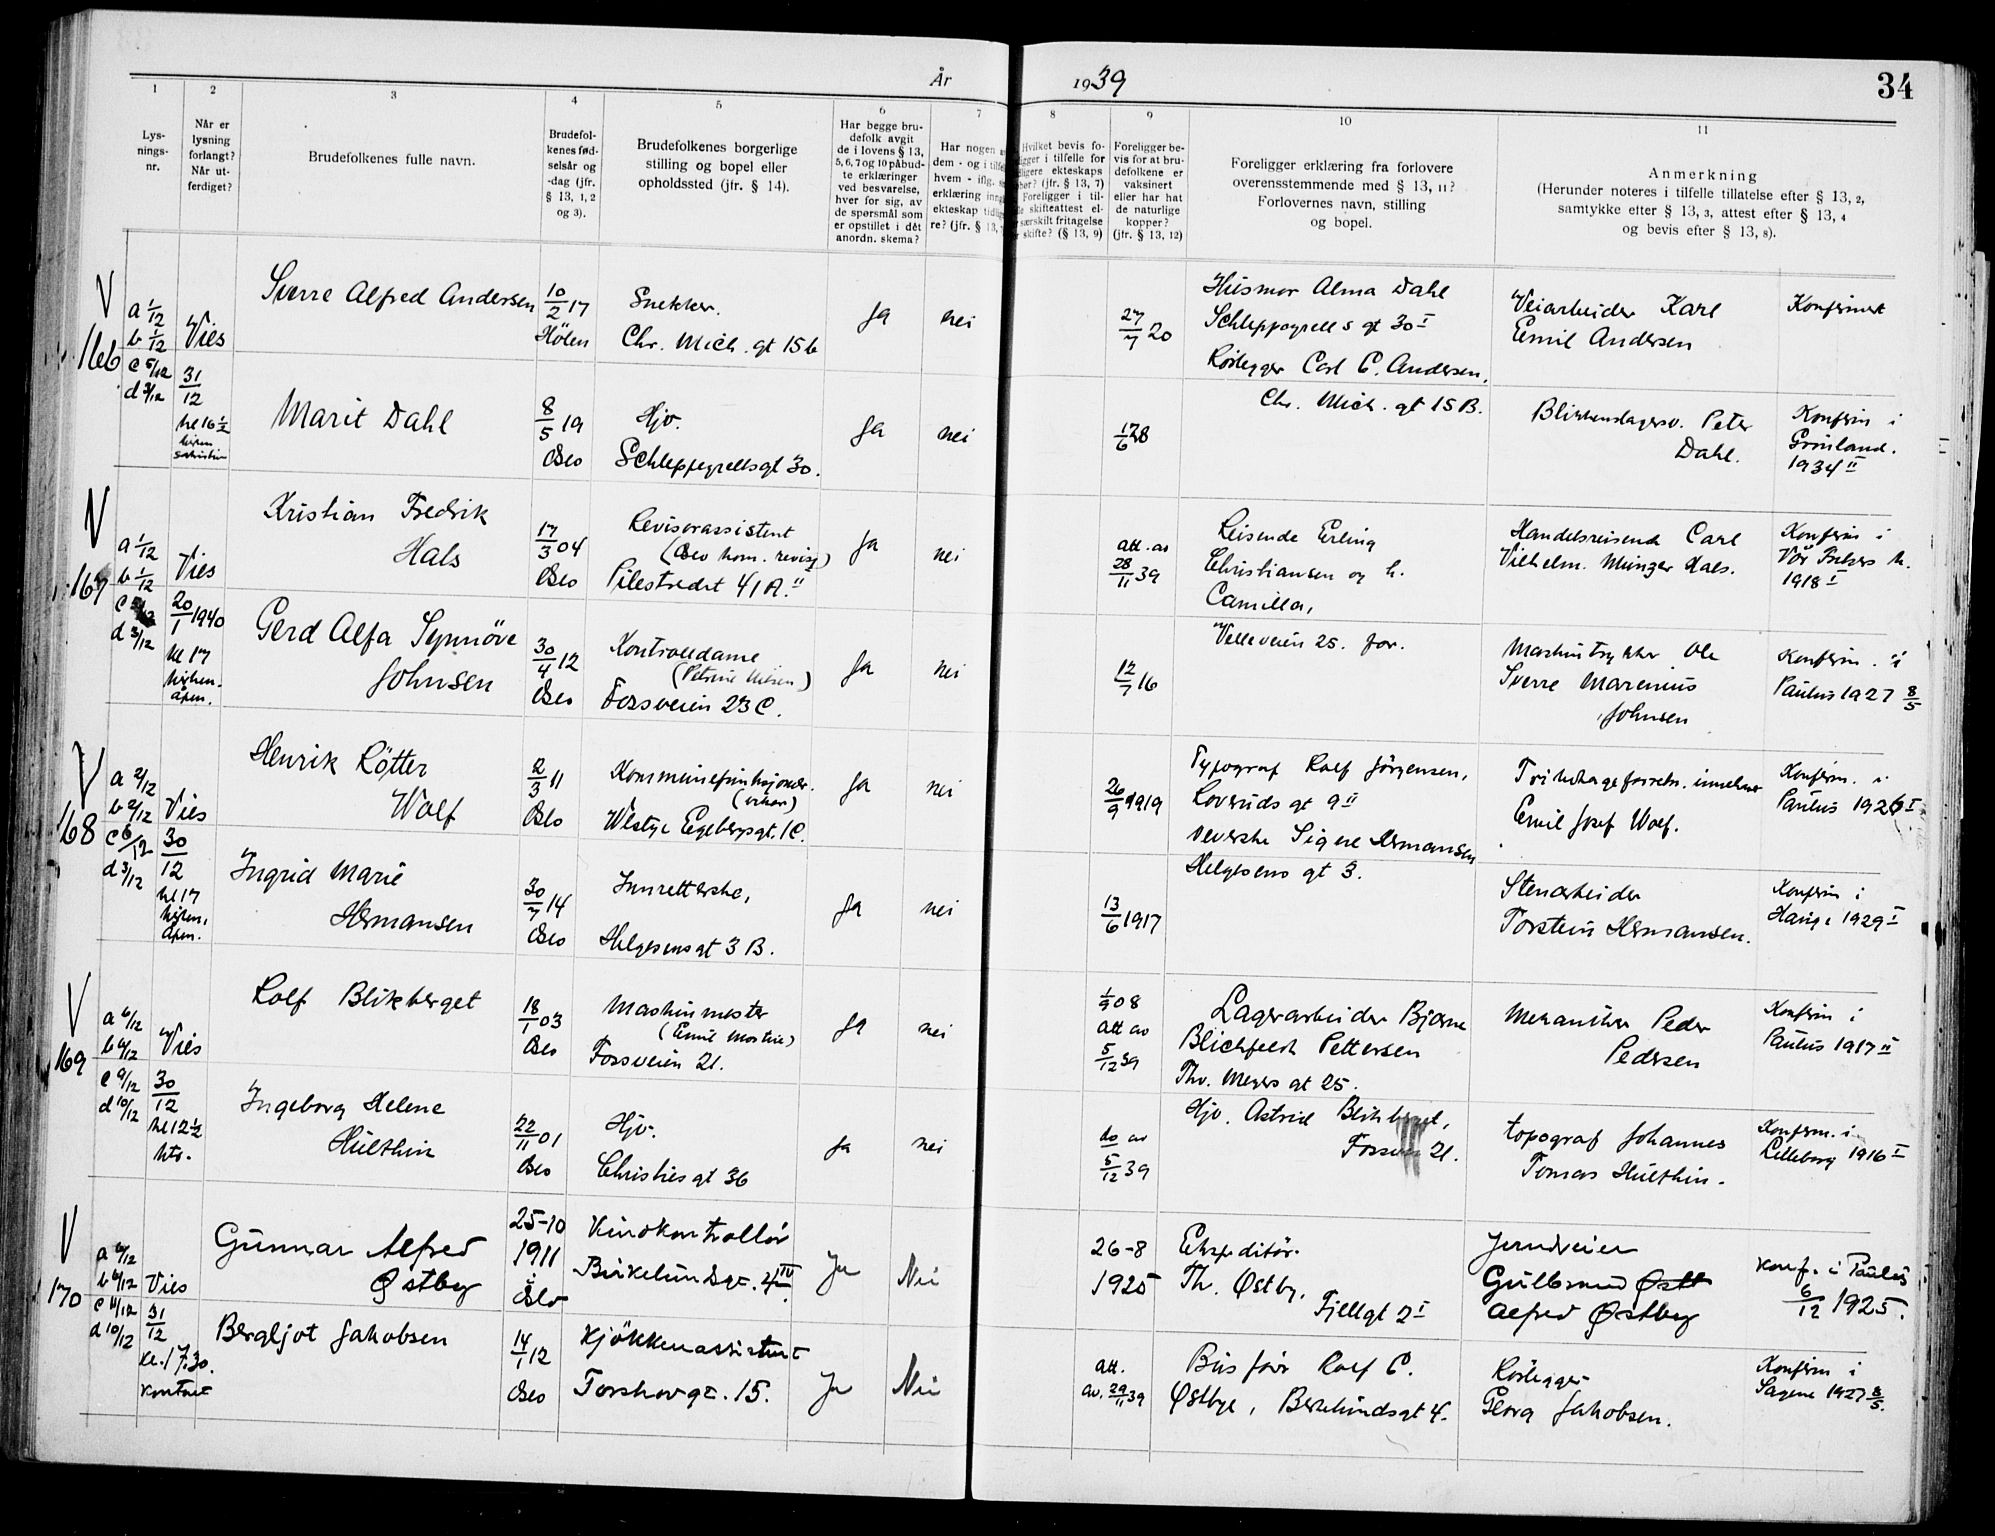 År 1939
34
1
2
3
4
5
6
7
8
9
10
11
Lys-
nings-
nr.
Når er
lysning
forlangt?
Når ut-
ferdiget?
Brudefolkenes fulle navn.
Brudefol-
kenes fød-
selsår og
-dag (jfr.
§ 13, 1, 2
og 3).
Brudefolkenes borgerlige
stilling og bopel eller
opholdssted (jfr. § 14).
Har begge bru-
defolk avgit
de i lovens § 13,
5, 6, 7 og 10 påbud-
te erklæringer
ved besvarelse,
hver for sig, av
de spørsmål som
er opstillet i dét
anordn. skema?
Har nogen
dem - og i
hvem - iflg.
erklæring
ekteskap
re? (jfr. § 13,
Hvilket bevis fo-
i tilfelle for
ekteskaps
(jfr. § 13, 7)
Foreligger i til-
skifteattest el-
særskilt fritagelse
skifte? (§ 13, 9)
Foreligger be-
vis for at bru-
defolkene er
vaksinert
eller har hat
de naturlige
kopper?
(jfr. § 13, 12)
Foreligger erklæring fra forlovere
overensstemmende med § 13, 11?
Forlovernes navn, stilling
og bopel.
Anmerkning
(Herunder noteres i tilfelle tillatelse efter § 13, 2,
samtykke efter § 13, 3, attest efter § 13, 4
og bevis efter § 13, 8).
V
166
a 1/12
b 1/12
c 5/12
d 3/12
Vies
31/12
kl 16 1/2
Sverre Alfred Andersen
10/2 17
Hølen
Snekker.
Chr. Mich. gt 15 b
Ja
nei
27/7 20
Husmor Alma Dahl
Schleppegrells gt 30 I
Rørlegger Carl C. Andersen,
Chr. Mich. gt 15 B.
Veiarbeider Karl
Emil Andersen
Konfirmert
Marit Dahl
8/5 19
Oslo
Hjv.
Schleppegrellsgt 30.
Ja
nei
Blikkenslagersv. Peter
Dahl.
Konfirm i
Grønland.
1934 II
V
167
a 1/12
b 1/12
d 3/12
Vies
20/1 1940
kl 17
kirken.
åpen.
Kristian Fredrik
Hals
17/3 04
Oslo
Revisorassistent
(Oslo kom. revisj)
Pilestredet 41 A. II
Ja
nei
att. av
28/11 39
Reisende Erling
Christiansen og h.
Camilla,
Velleveien 25. for.
Handelsreisende Carl
Vilhelm Munzer Hals.
Konfirm i
Vår Frelsers k.
1918 I
Gerd Alfa Synnöve
Johnsen
30/4 12
Oslo
Kontroldame
Fossveien 23 C.
Ja
nei
12/7 16
Maskintrykker Ole
Sverre Marenius
Johnsen
Konfirm. i
Paulus 1927 8/5
V
168
a 2/12
b 2/12
c 6/12
d 3/12
Vies
30/12
kl 17
kirken,
åpen.
Henrik Røtter
Wolf
2/3 11
Oslo
Kommunefunksjonær.
(vikar)
Westye Egebergsgt. 1 C.
Ja
nei
26/9 1919
Typograf Rolf Jörgensen,
Loveruds gt 9 II
veverske Signe Hermansen
Helgesens gt 3.
Emil Josef Wolf.
Konfirm. i
Paulus 1926 I
Ingrid Marie
Hermansen
30/7 14
Oslo
Innretterske,
Helgesensgt 3 B.
Ja
nei
13/6 1917
Stenarbeider
Torstein Hermansen.
Konfirm i
Hauge 1929 I
V
169
a 6/12
b 6/12
c 9/12
d 10/12
Vies
30/12
kl 12 1/2
ktr.
Rolf Blikberget
18/1 03
Oslo
Maskinmester
Fossveien 21.
Ja
nei
1/9 08
att av
5/12 39
Lagerarbeider Bjarne
Blichfeldt Pettersen
Thv. Meyers gt 25.
Hjv. Astrid Blikberget,
21.
Mekaniker Peder
Pedersen
Konfirm i
Paulus 1917 II
Ingeborg Helene
Hulthin
22/11 01
Oslo
Hjv.
Christies gt 36
Ja
nei
do av
5/12 39
topograf Johannes
Tomas Hulthin.
Konfirm. i
Lilleborg 1916 I
V
170
a 6/12
b 6/12
c 11/12
d 10/12
Vies
31/12
kl. 17.30.
kontoret
Gunnar Alfred
Østby
25-10
1911
i
Oslo
Kinokontrollör
Birkelundsgt. 4 IV
Ja
Nei
26-8
1925
Ekspeditör
Th. Østby.
Fjellgt 2 I
Jernveier
Gulbrand Østb
Alfred Østby
Konf. i Paulus
6/12 1925.
Bergljot Jakobsen
14/1 12
Oslo
Kjökkenassistent
Torshovgt. 15.
Ja
Nei
att.
av. 29/11 39
Bussjåfør Rolf C.
Østbye, Birkelundsgt 4.
Rörlegger
Georg Jakobsen.
Konfirm i
Sagene 1927 8/5.